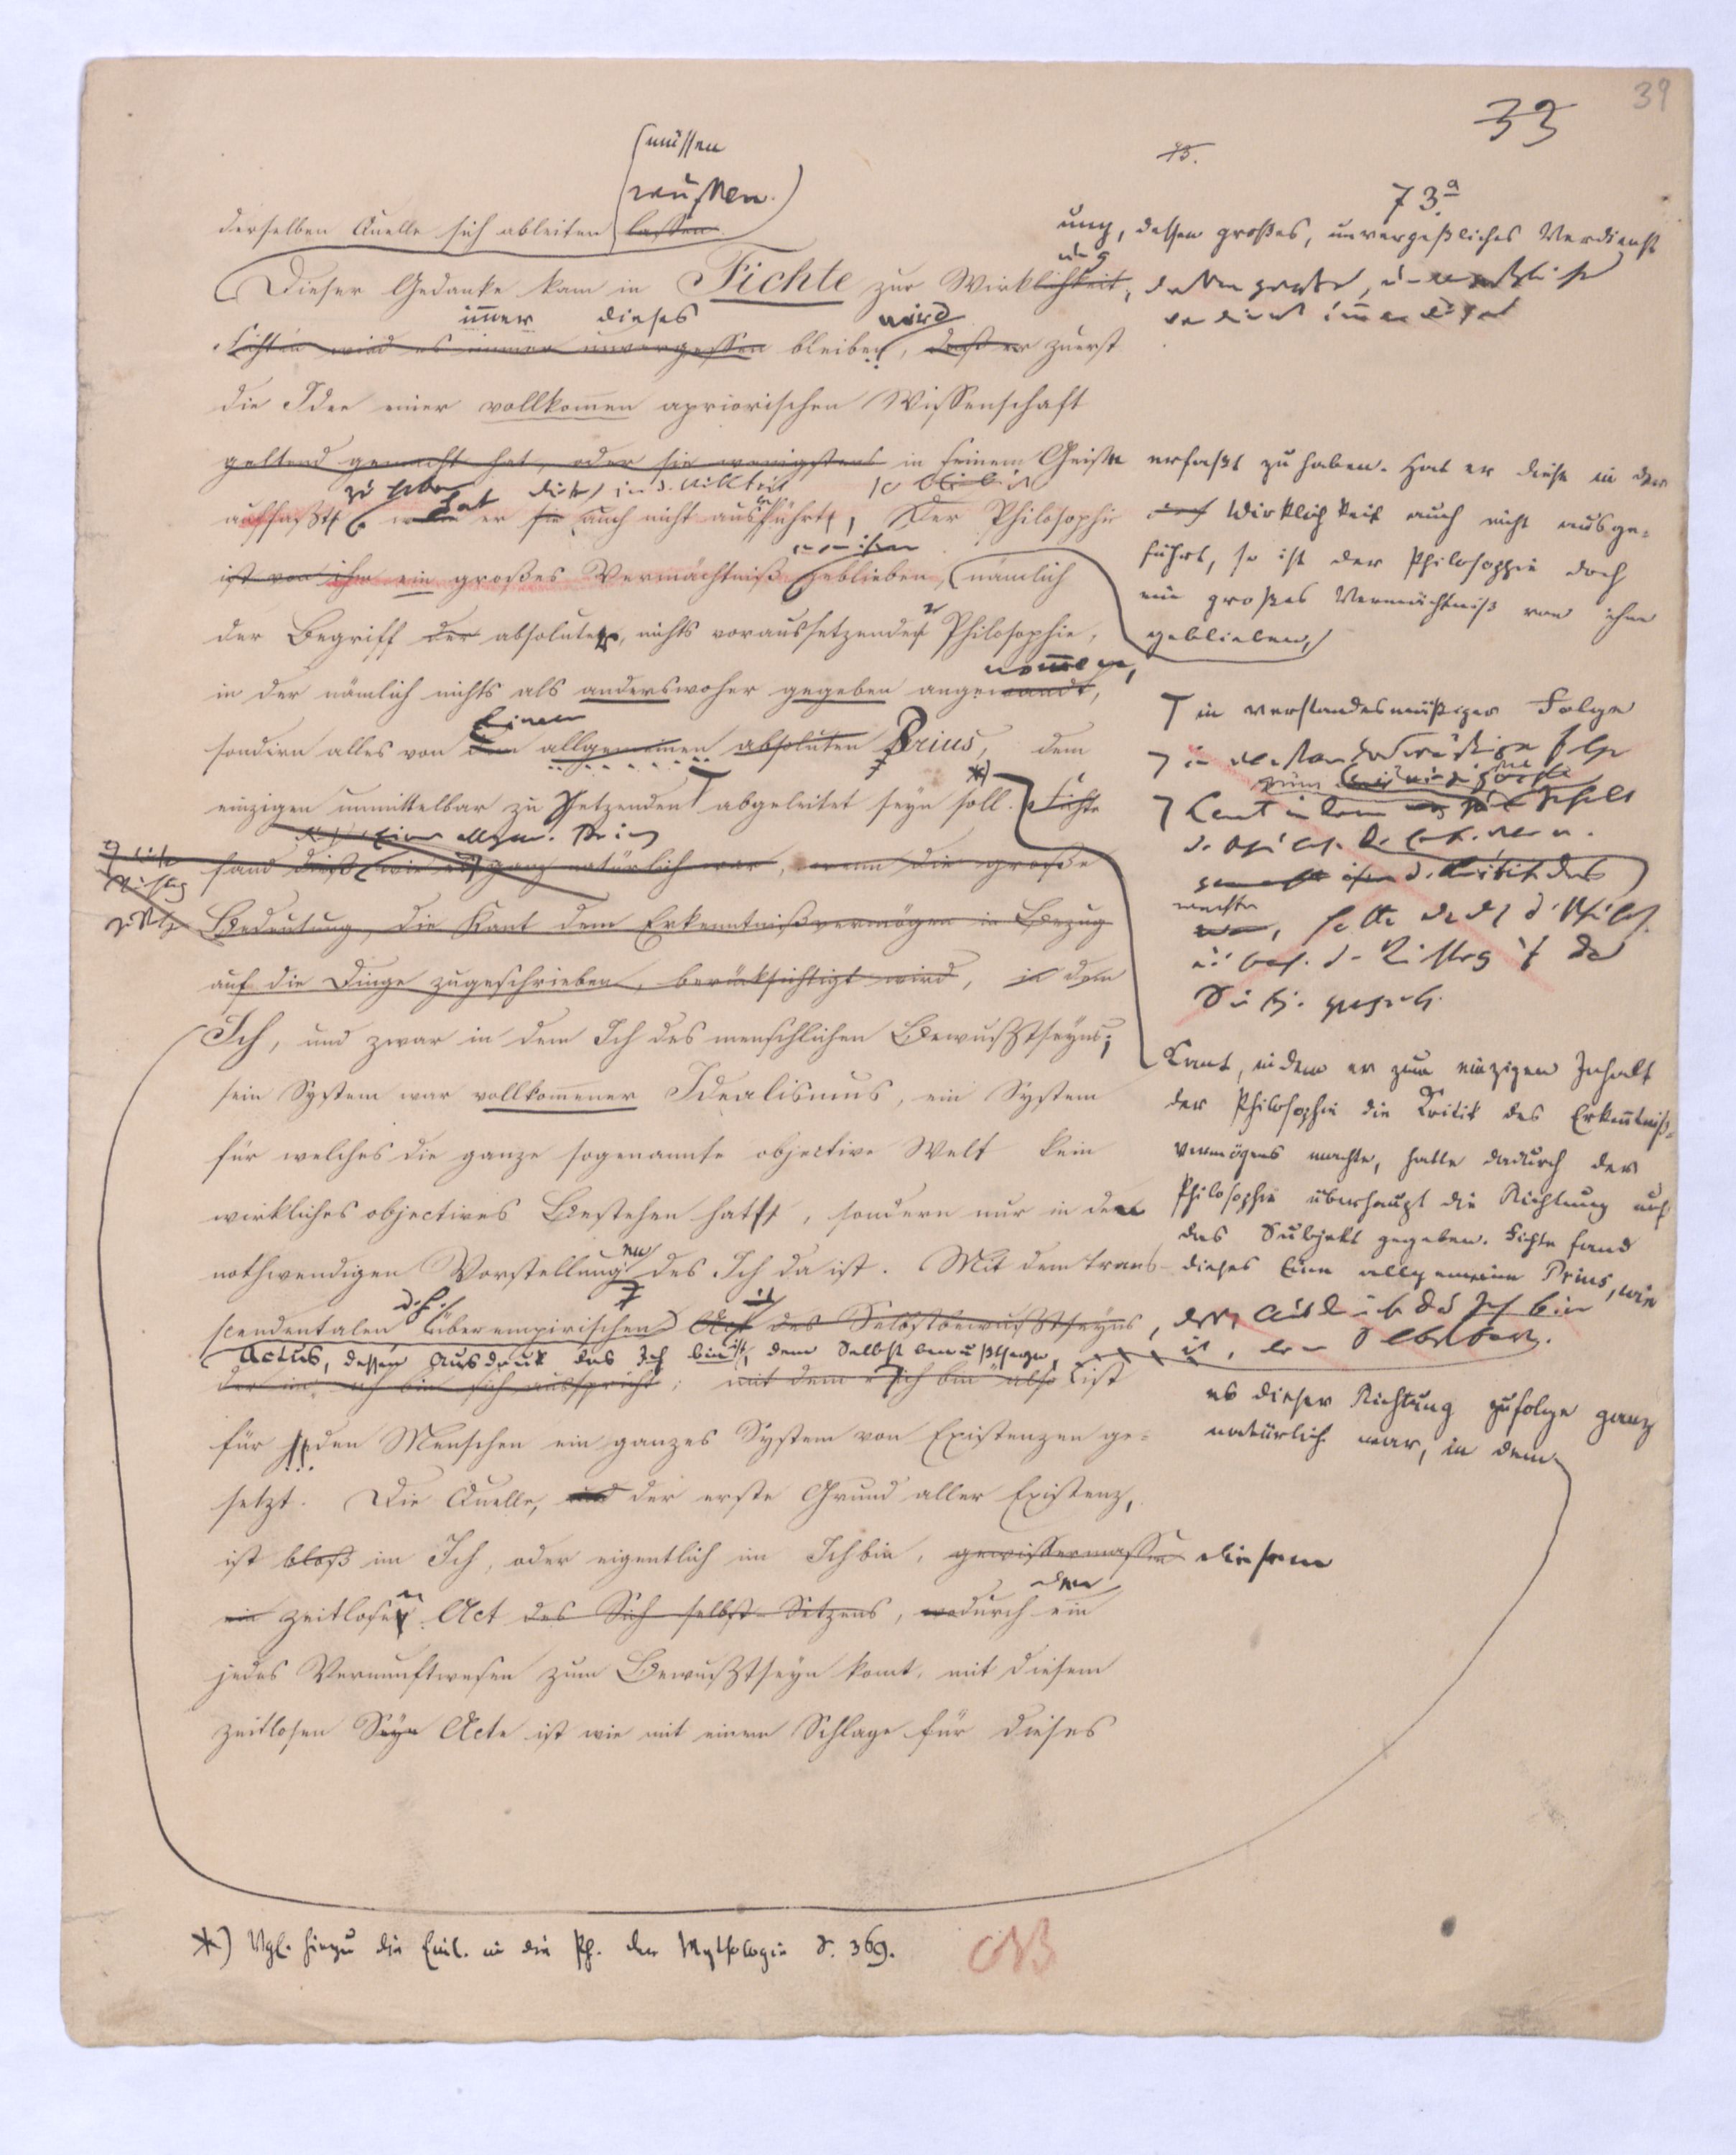 39
33
73.
73a
müssen
müssen.
derselben Quelle sich ableiten lassen.
ung, dessen großes, unvergeßliches Verdienst
Dieser Gedanke kam in Fichte zur Wirklichkeit,
ung
immer dieses wird
Fichten wird es immer unvergessen bleiben, daß er zuerst
die Idee einer vollkomen apriorischen Wissenschaft
geltend gemacht hat, oder sie wenigstens in seinem Geiste erfaßt zu haben. Hat er diese in der
zu haben hat diese in d. Wirklkeit
auffaßte er sie auch nicht ausführte, Der Philosophie
Wirklichkeit auch nicht ausge-
führt, so ist der Philosophie doch
ein großes Vermächtniß von ihm
geblieben,
ist von ihm ein großes Vermächtniß geblieben, nämlich
der Begriff der absoluten, nichts voraussetzenden Philosophie,
nommen,
in der nämlich nichts als anderswoher gegeben angewandt,
Einem
sondern alles von dem allgemeinen absoluten Prius, dem
einzigen unmittelbar zu Setzenden abgeleitet seyn soll. *) Fichte
T in verstandesmäßiger Folge
fand dieß (wie es ganz natürlich war, wenn die große
Bedeutung, die Kant dem Erkenntnißvermögen in Bezug
auf die Dinge zugeschrieben, berücksichtigt wird, in dem
Ich, und zwar in dem Ich des menschlichen Bewußtseyns;
sein System war vollkommener Idealismus, ein System
für welches die ganze sogenannte objective Welt kein
wirkliches objectives Bestehen hat, sondern nur in den
nothwendigen Vorstellungen des Ich da ist. Mit dem trans-
d. h.
scendentalen überempirischen Act des Selbstbewußtseyns,
Actus, dessen Ausdruck das Ich bin ist, dem Selbstbewußtseyn,
der im Ich bin sich ausspricht; mit dem Ich bin also ist
für jeden Menschen ein ganzes System von Existenzen ge-
setzt. Die Quelle, und der erste Grund aller Existenz,
ist bloß im Ich, oder eigentlich im Ich bin, gewissermassen diesem
ein zeitlosen Act des Sich selbst-Setzens, wodurch ein
dem
jedes Vernunftwesen zum Bewußtseyn komt. mit diesem
zeitlosen Seyn Acte ist wie mit einem Schlage für dieses
Kant, indem er zum einzigen Inhalt
der Philosophie die Kritik des Erkenntniß-
vermögens machte, hatte dadurch der
Philosophie überhaupt die Richtung auf
das Subjekt gegeben. Fichte fand
dieses Eine allgemeine Prius, wie
es dieser Richtung zufolge ganz
natürlich war, in dem
*) Vgl. hiezu die Einl. in die Ph. der Mythologie S. 369.